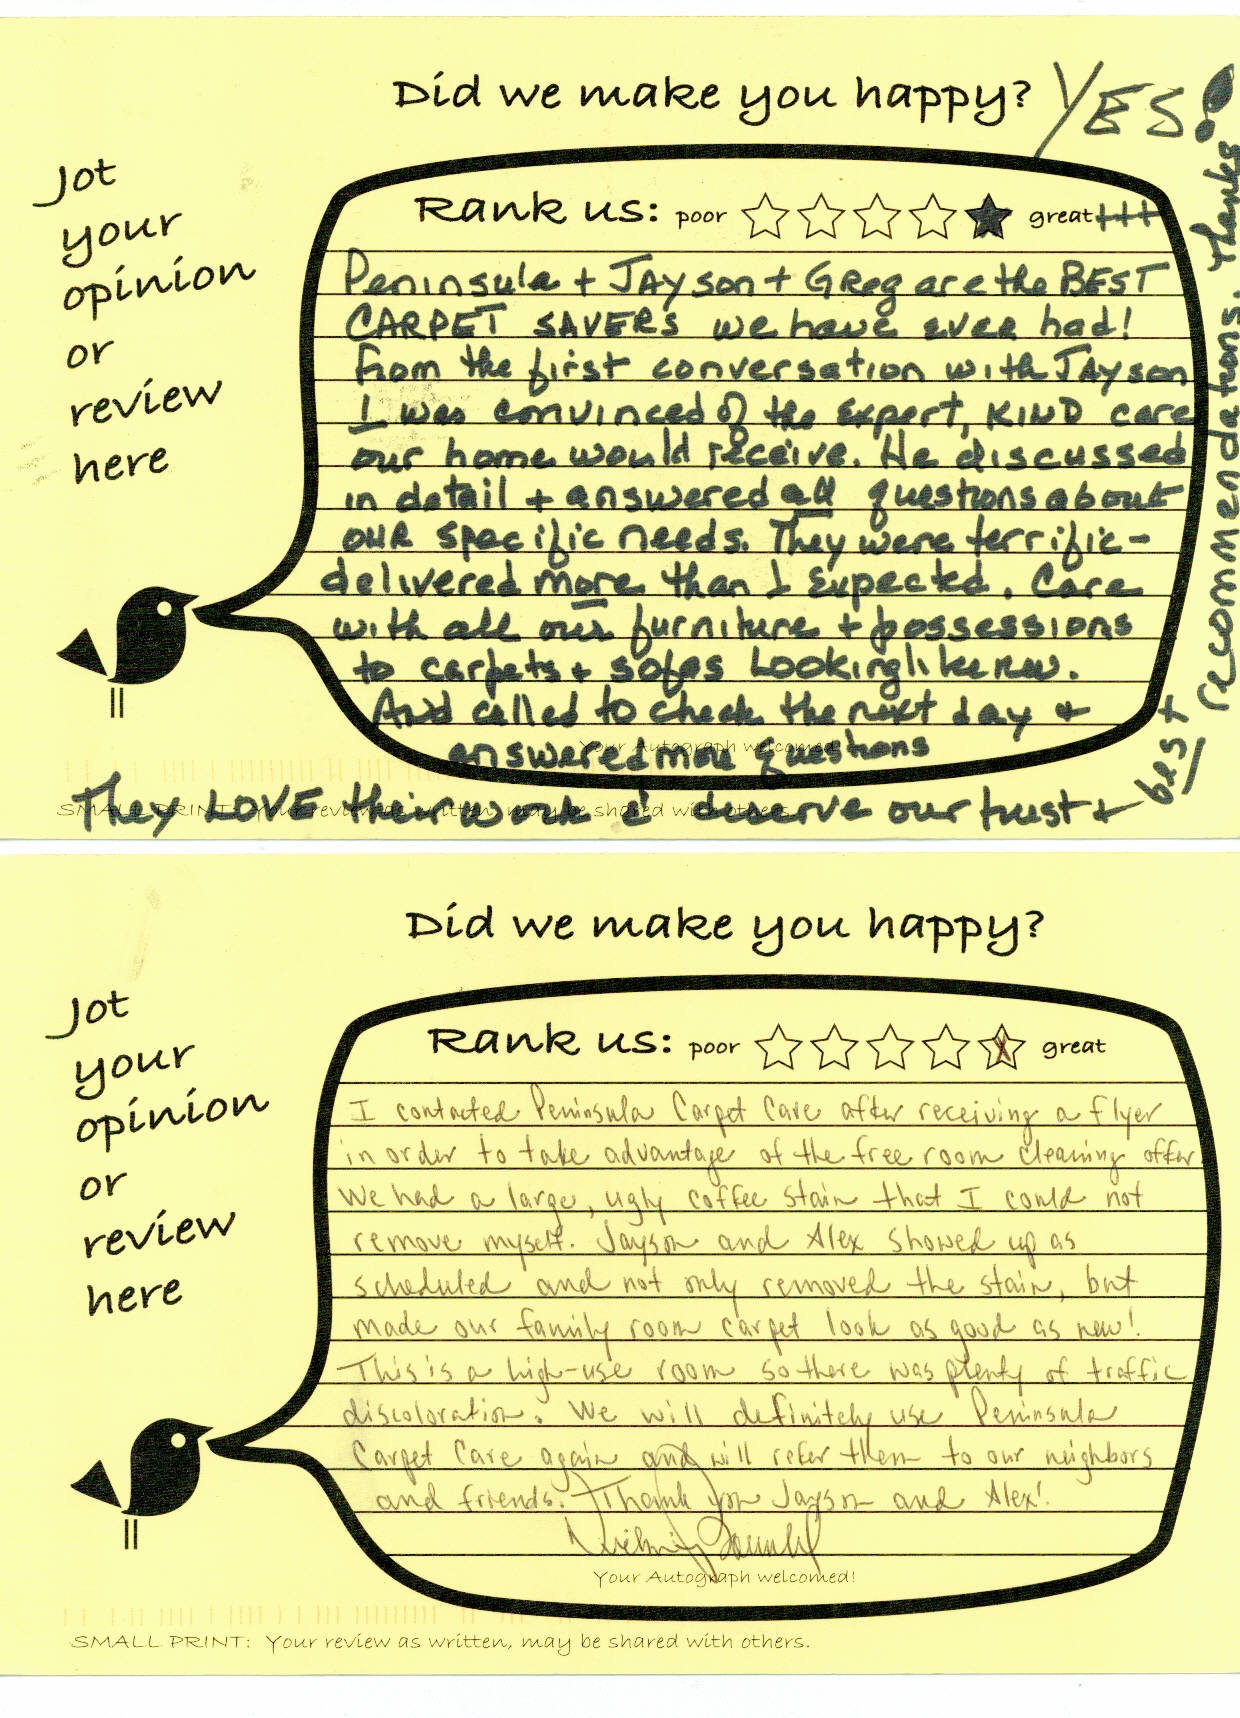 Did we make you happy? YES!
Jot
your
opinion
or
review
here
Rank us: poor great +++
Peninsula + JAyson + Greg are the BEST
CARPET SAVERS we have ever had!
From the first conversation with JAyson
I was convinced of the expert, KIND care
our home would receive. He discussed
in detail + answered all questions about
our specific needs. They were terrific-
delivered more than I expected. Care
with all our furniture + possessions
to carpets + sofas looking like new.
And called to check the next day +
answered more questions
Your Autograph welcomed!
SMALL PRINT: Your review as written, may be shared with others.
They LOVE their work & deserve our trust +
best
recommendations. Thanks
Did we make you happy?
Jot
your
opinion
or
review
here
Rank us: poor great
I contacted Peninsula Carpet Care after receiving a flyer
in order to take advantage of the free room cleaning offer.
We had a large, ugly coffee stain that I could not
remove myself. Jayson and Alex showed up as
scheduled and not only removed the stain, but
made our family room carpet look as good as new!
This is a high-use room so there was plenty of traffic
discoloration. We will definitely use Peninsula
Carpet Care again and will refer them to our neighbors
and friends. Thank you Jayson and Alex!
Your Autograph welcomed!
SMALL PRINT: Your review as written, may be shared with others.